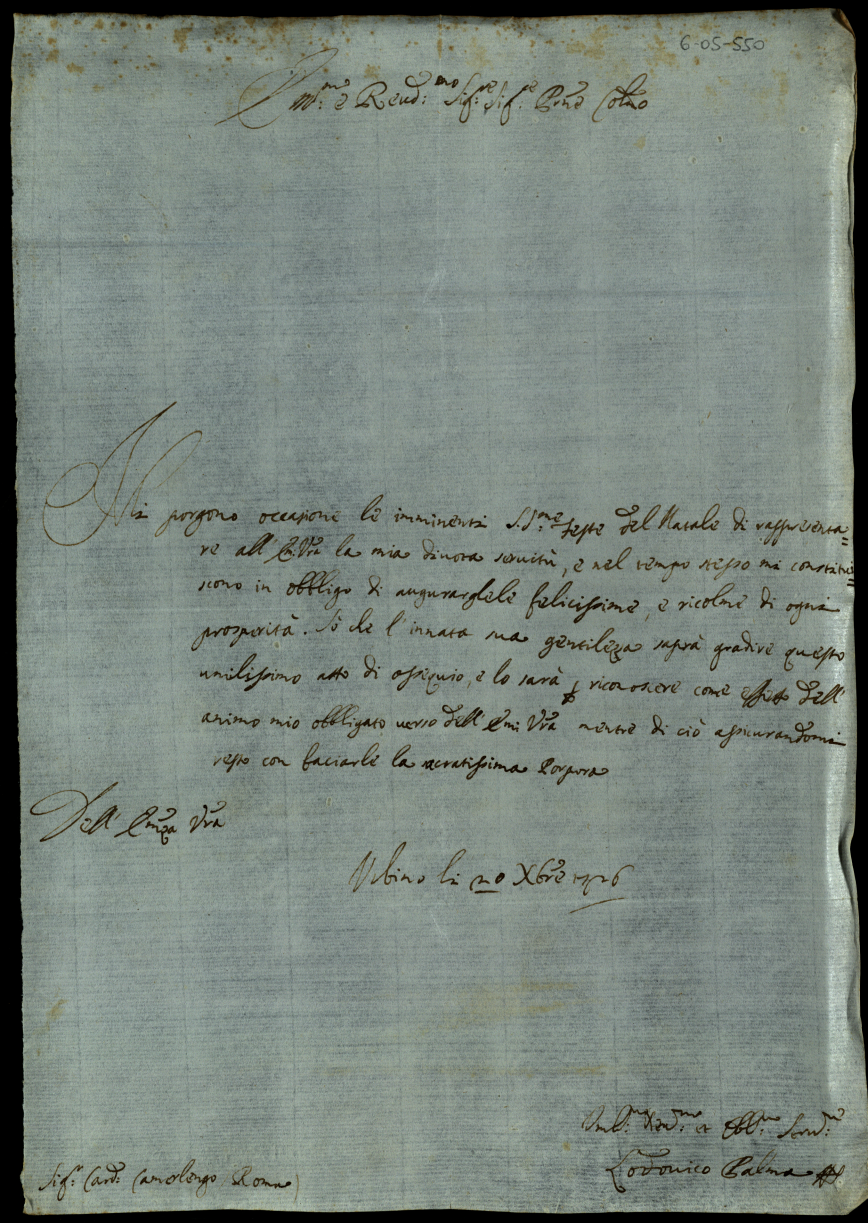 6-05-550
Em.mo e Reud.mo Sig.re Sig.re Prne Colmo
Mi porgono occasione le imminenti S.S.me feste del Natale di rappresenta=
re all' Em: Vrã la mia diuota seruitù, e nel tempo stesso mi constitui=
scono in obbligo di augurarglele felicissime, e ricolme di ogni
prosperità. Sò che l'innata sua gentileza saprà gradire questo
umilissimo atto di ossequio, e lo sarà p riconoscere come effetto dell'
animo mio obbligato uerso dell' Em: Vrã mentre di ciò assicurandomi
resto con baciarle la sacratissima Porpora
Dell' Emza Vrã
Vrbino li 20 Xbre 1726
Vmil.mo Deud.mo et Obbl.mo Seru.re
Lodouico Palma
Sig.r Card: Camerlengo Roma